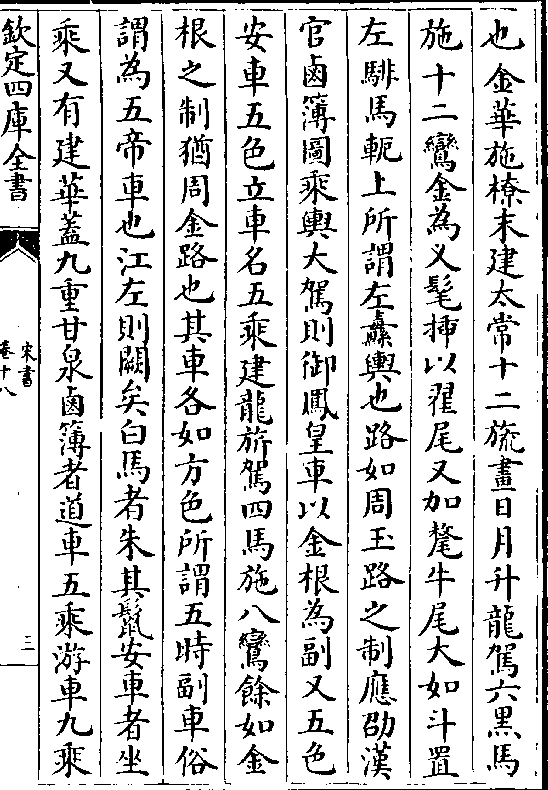 也金華施橑末建太常十二旒畫日月升龍駕六黑馬
施十二鸞金為义髦揷以翟尾又加氂牛尾大如斗置
左騑馬軛上所謂左纛輿也路如周玉路之制應劭漢
官鹵簿圖乘輿大駕則御鳳皇車以金根為副又五色
安車五色立車名五乘建龍旂駕四馬施八鸞餘如金
根之制猶周金路也其車各如方色所謂五時副車俗
謂為五帝車也江左則闕矣白馬者朱其鬛安車者坐
乘又有建華蓋九重甘泉鹵簿者道車五乘游車九乘
欽定四庫全書
宋書
卷十八
三